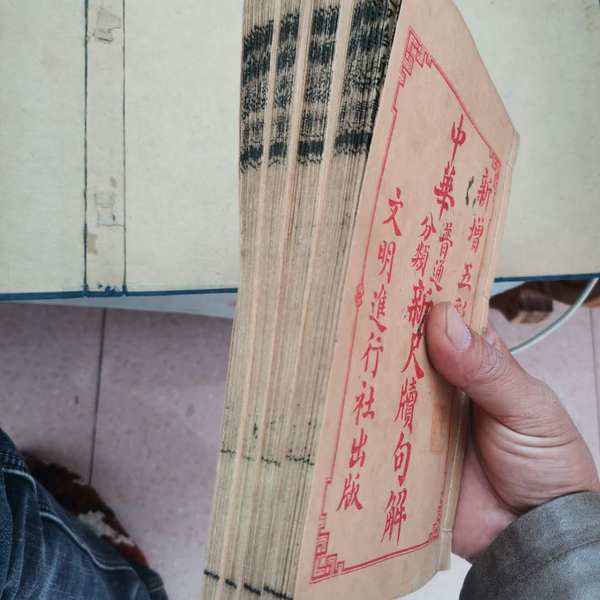 新增五
中華普通分類新尺牘句解
文明進行社出版